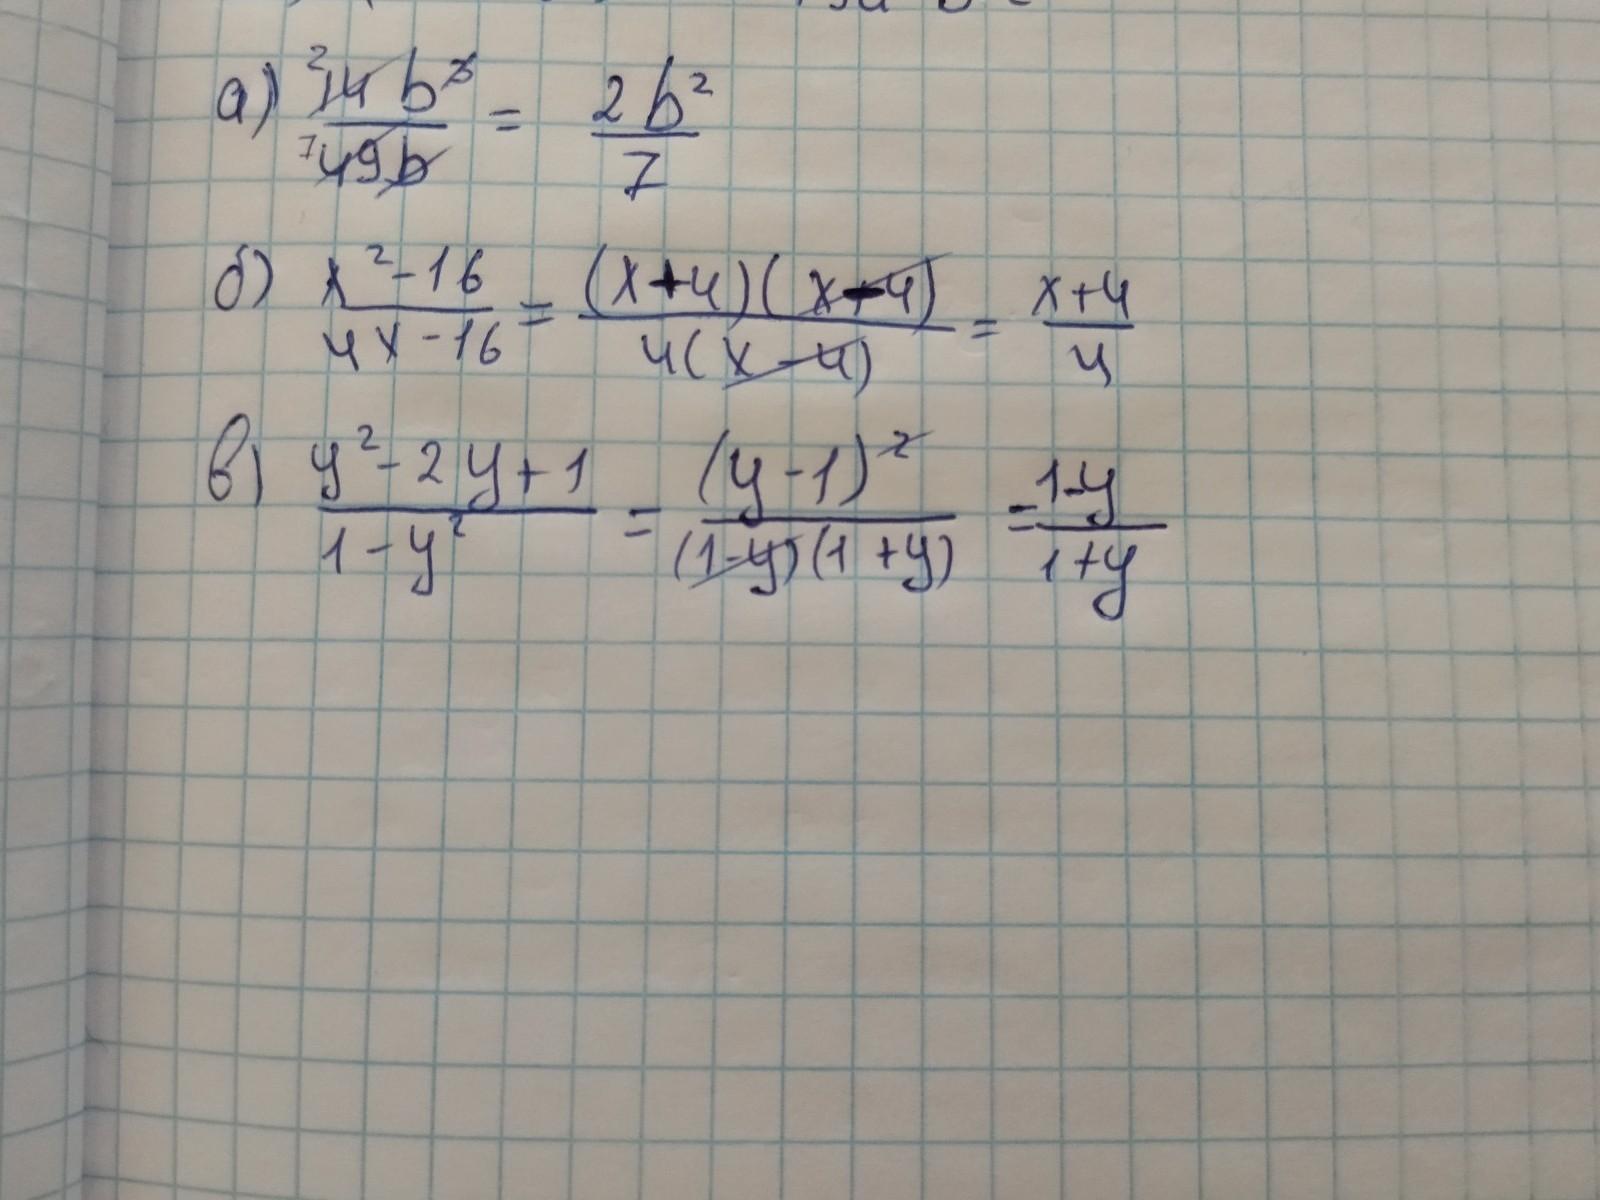 а) ²14b³/⁷49b = 2b²/7
б) x²-16/4x-16 = (x+4)(x-4)/4(x-4) = x+4/4
в) y²-2y+1/1-y² = (y-1)²/(1-y)(1+y) = 1-y/1+y